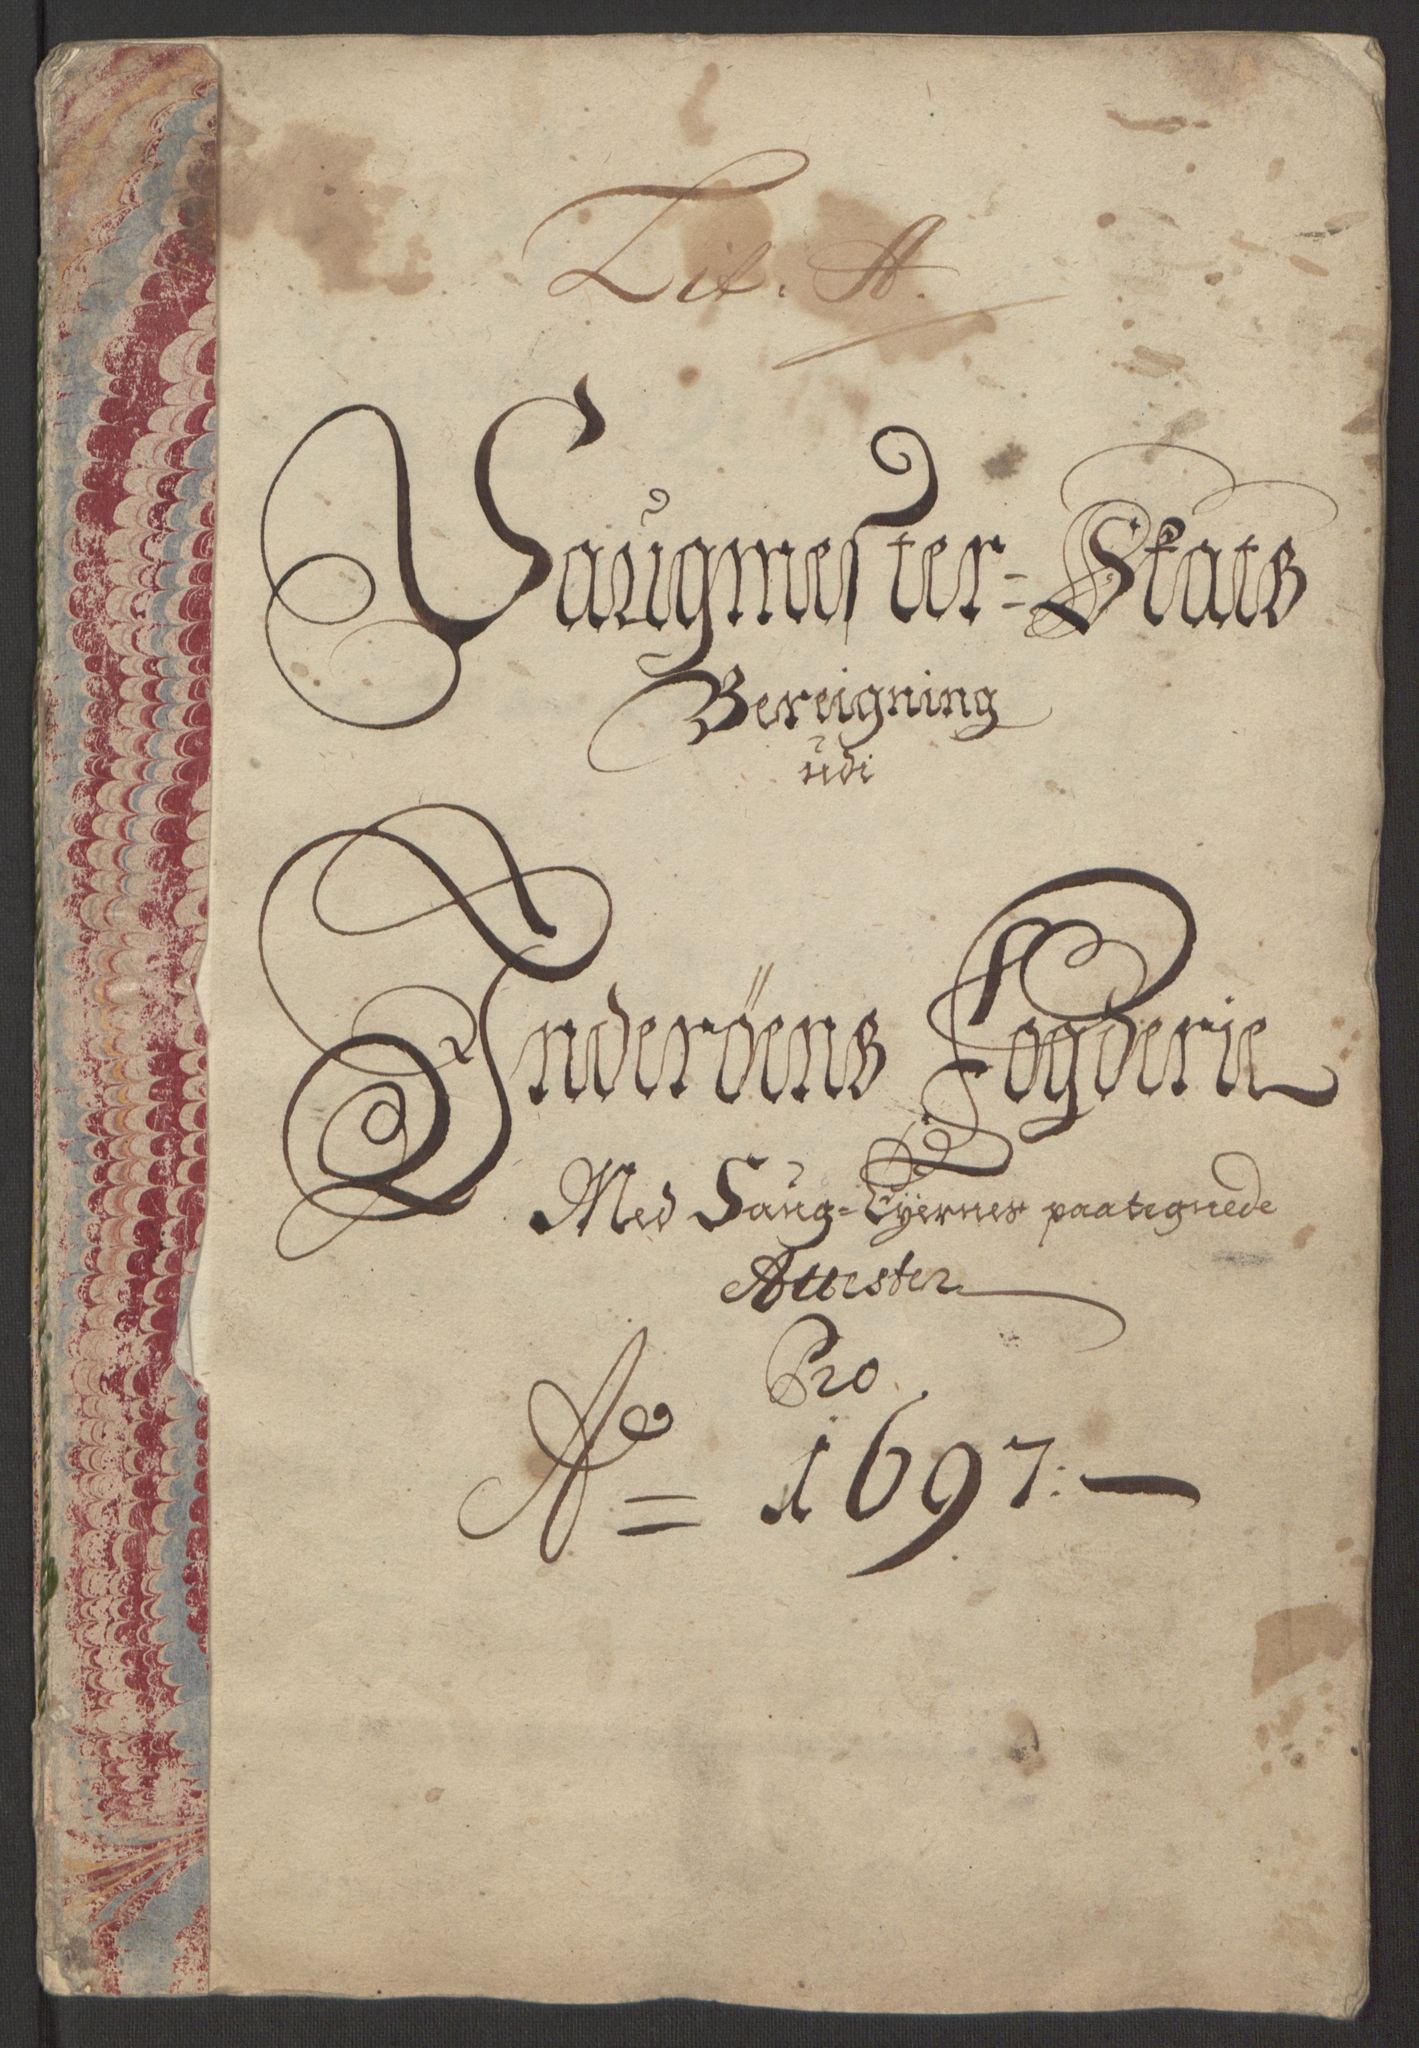 Lit. A.
Saugmester-Skats
Bereigning
udi
Inderøens Fogderie
Med Saug-Eyernes paategnede
Attester
Pro
Ao = 1697: